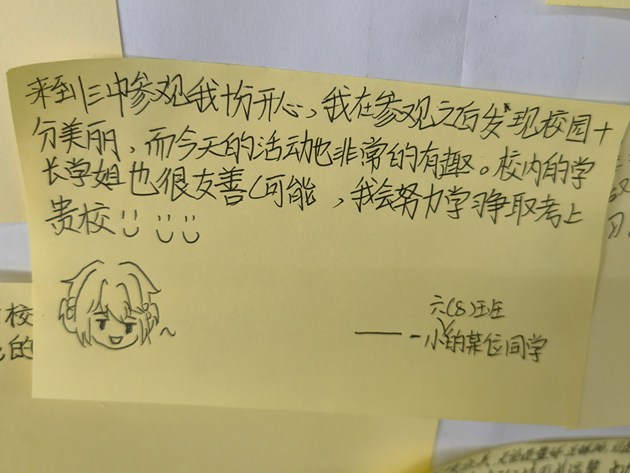 来到十三中参观我十份开心，我在参观之后发现校园十
分美丽，而今天的活动也非常的有趣。校内的学
长学姐也很友善(可能，我会努力学习争取考上
贵校
六(8)班
——-小的某位同学
校
的